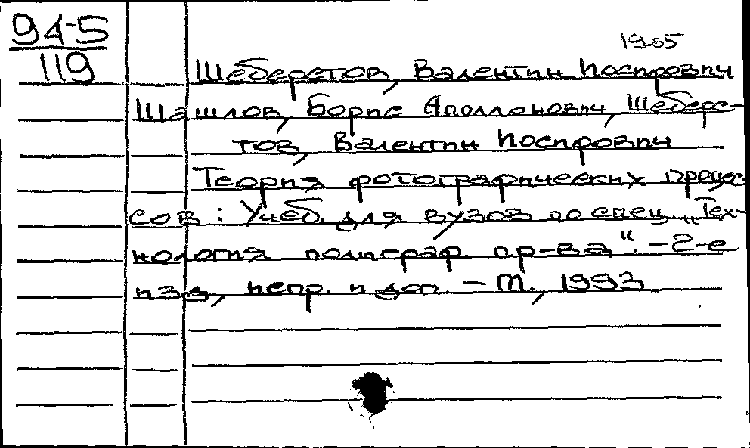 94-5
119
1905
Шеберстов, Валентин Иосифович
Шашлов, Борис Аполлонович, Шеберс-
тов, Валентин Иосифович
Теория фотографических процес-
сов : Учеб. для вузов по спец. „Тех-
нология полиграф. пр-ва“. – 2-е
изд., испр. и доп. – М., 1993